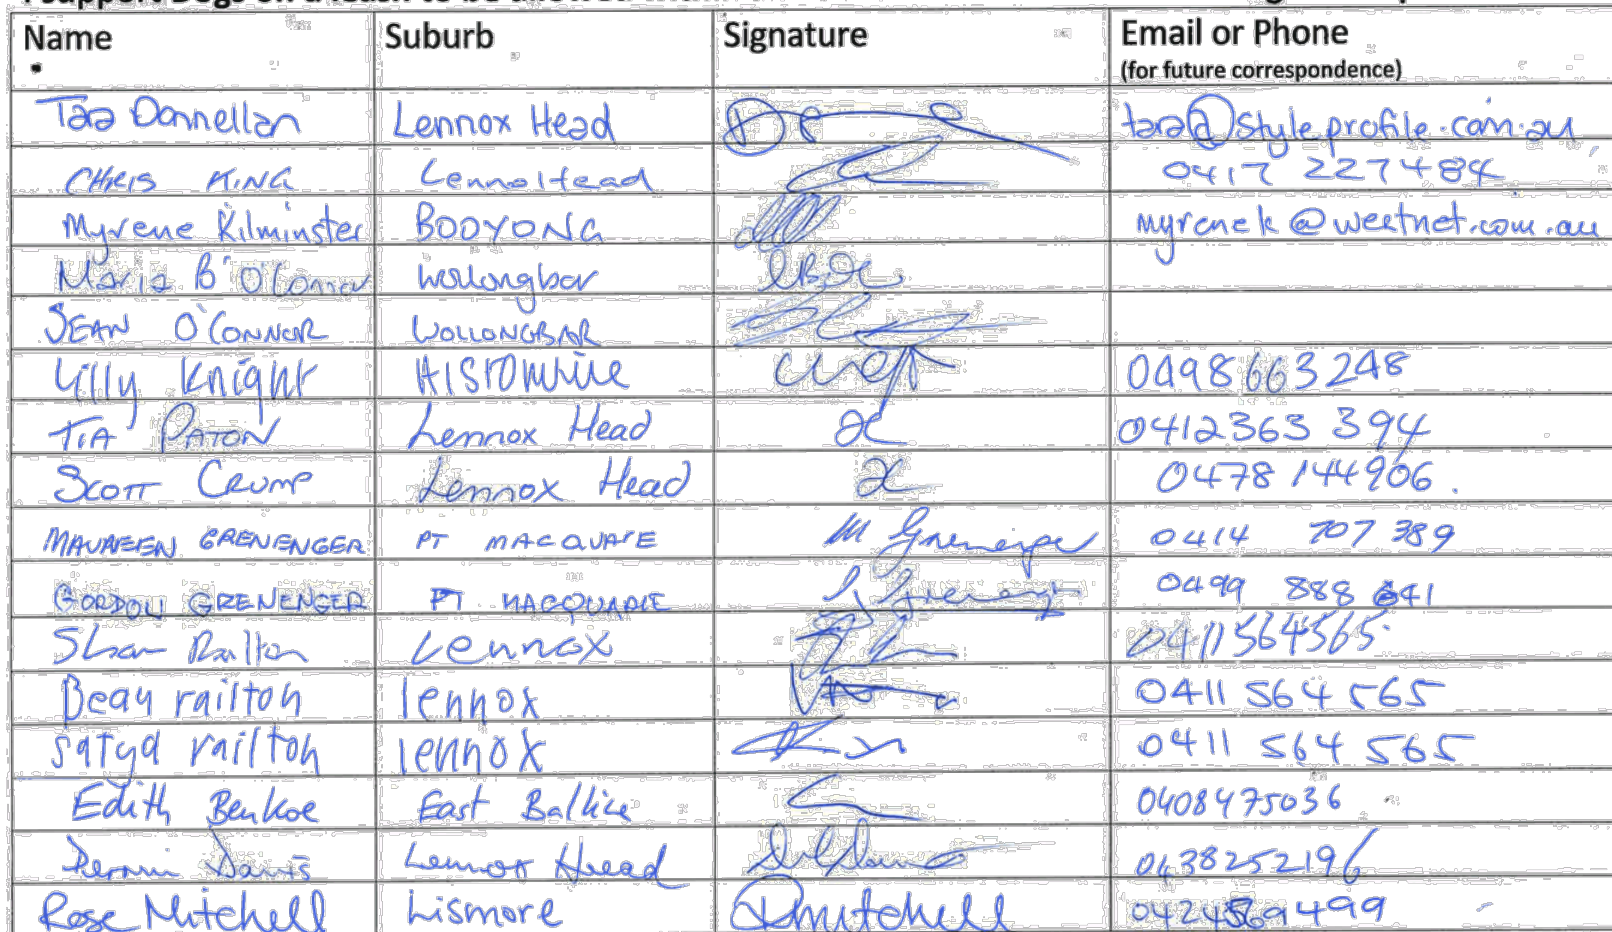 Name Suburb Signature Email or Phone
(for future correspondence)
Taa Donnellan Lennox Head tara@styleprofile.com.au
CHRIS KING Lennox Head 0417 227484
Myrene Kilminster BOOYONG myrenek@westnet.com.au
Maria B O'Connor Wollongbar
SEAN O'CONNOR WOLLONGBAR
Lilly Knight 0498 663248
TIA PATON Lennox Head 0412363 394
SCOTT CRUMP Lennox Head 0478 144906.
MAUREEN GRENENGER PT MACQUARIE M Grenenger 0414 707 389
GORDON GRENENGER PT MACQUARIE G Grenenger 0499 888 641
Shan Railton Lennox 0411564565
Beau railton lennox 0411 564 565
satya railton lennox 0411 564 565
Edith Benkoe East Ballina 0408475036
Davis Lennox Head 0438252196
Rose Mitchell Lismore RMitchell